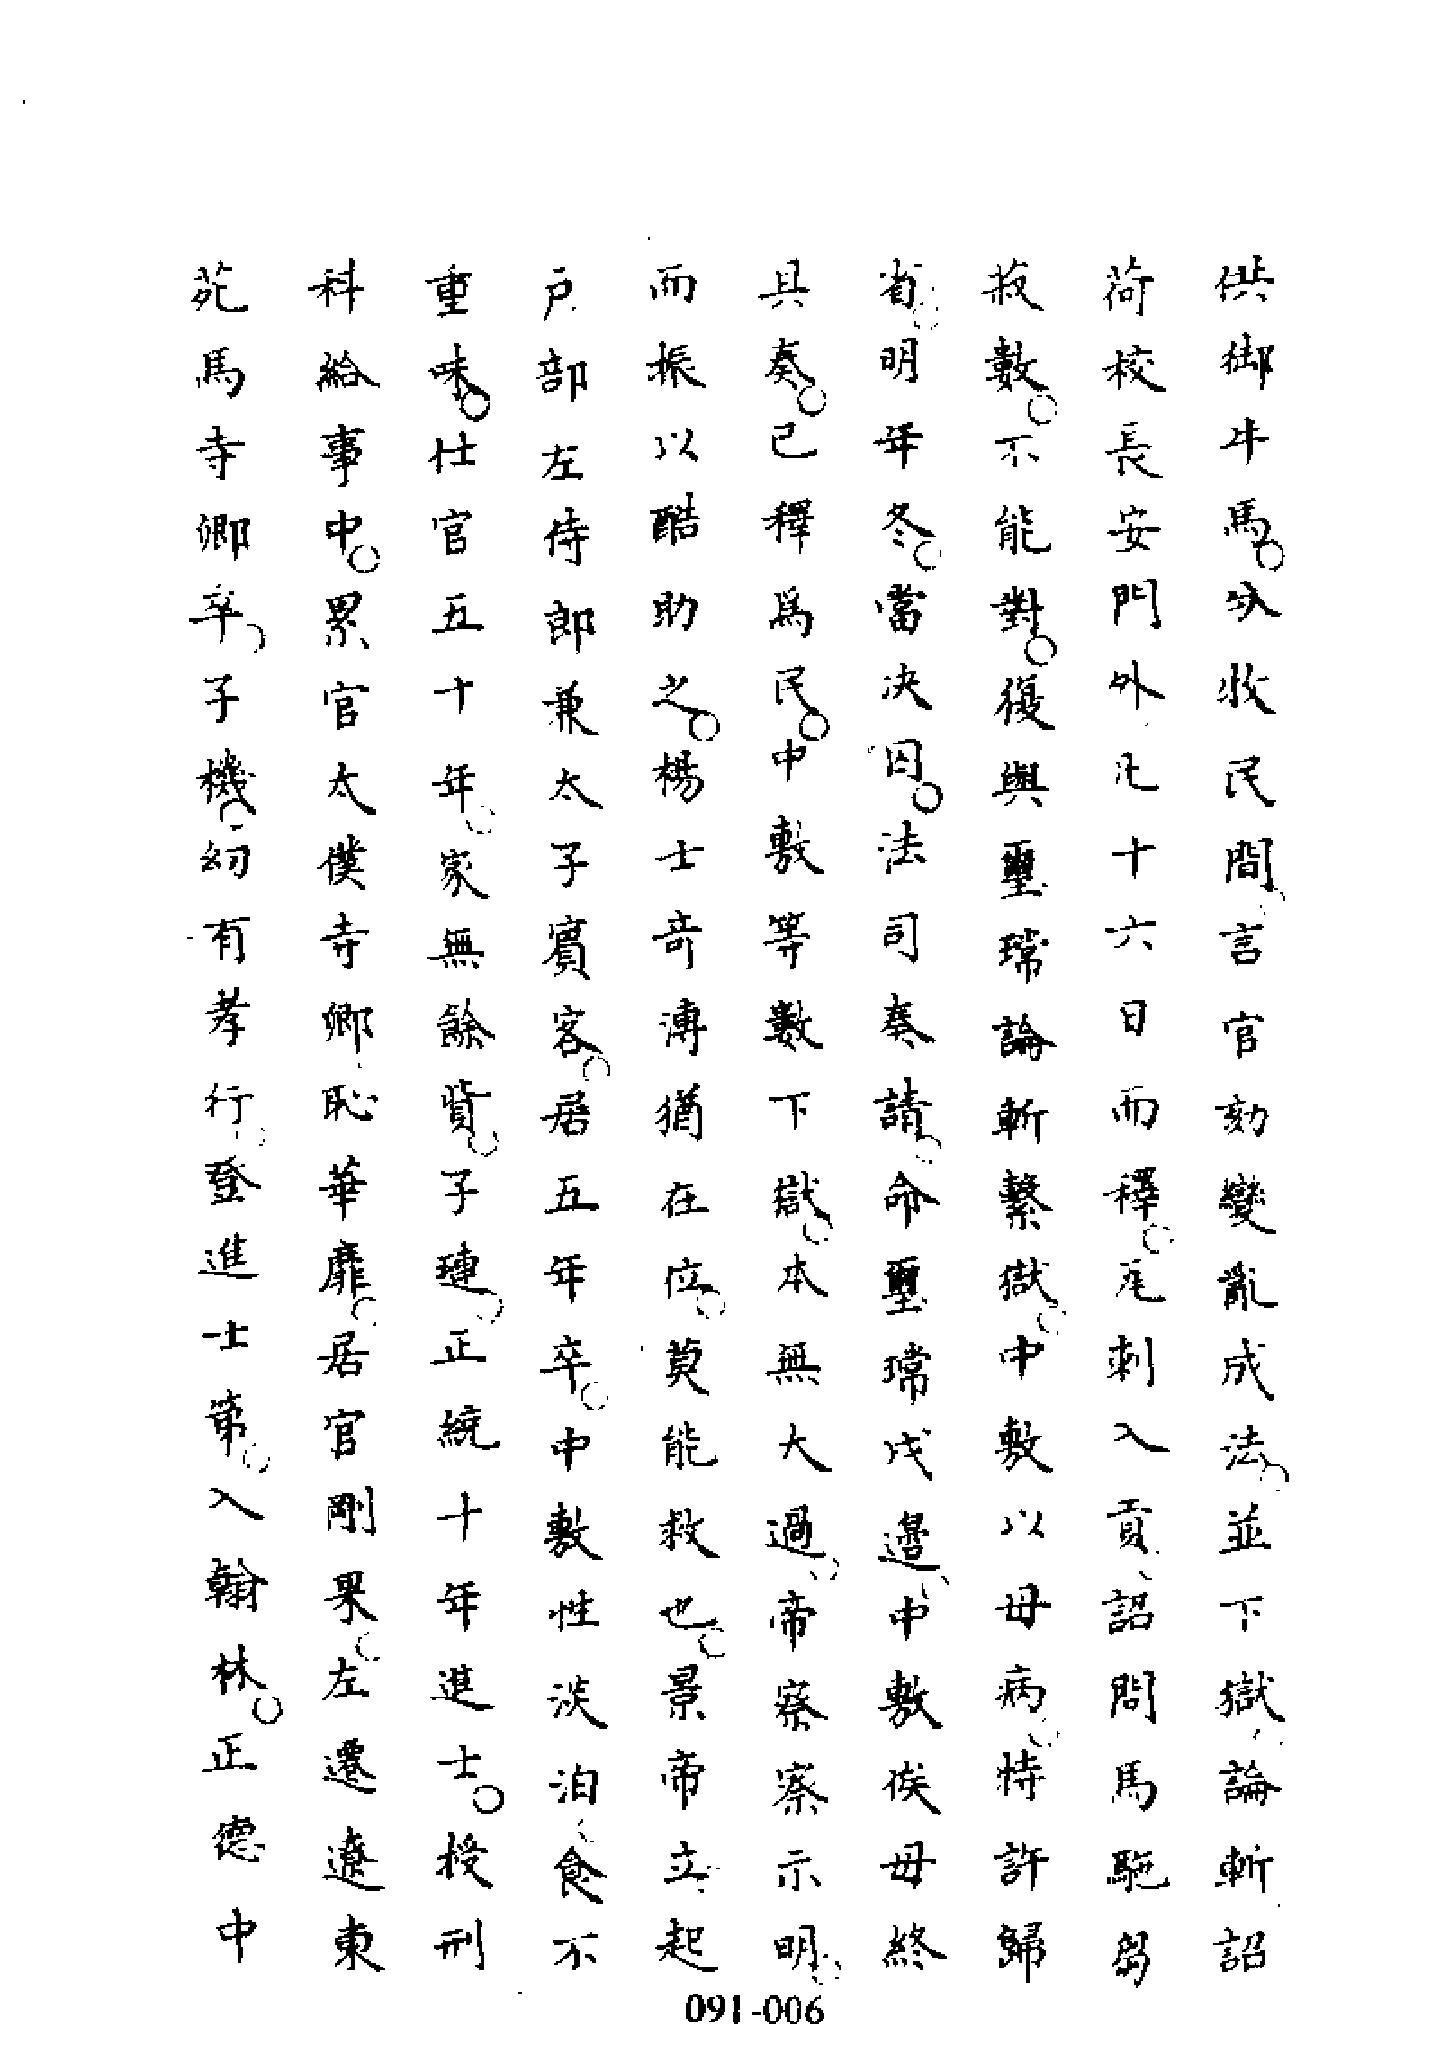 供御牛馬分收民間言官劾變亂成法並下獄論斬詔
荷校長安門外凡十六日而釋瓦剌入貢詔問馬駞芻
菽數不能對復與璽瑺論斬繫獄中敷以母病特許歸
省明年冬當决囚法司奏請命璽瑺戍邊中敷俟母終
具奏已釋爲民中敷等數下獄本無大過帝察察示明
而振以酷助之楊士竒溥猶在位莫能救也景帝立起
戶部左侍郎兼太子賓客居五年卒中敷性淡泊食不
重味仕官五十年家無餘貲子璉正統十年進士授刑
科給事中累官太僕寺卿恥華靡居官剛果左遷遼東
苑馬寺卿卒子機幼有孝行登進士第入翰林正德中
091-006